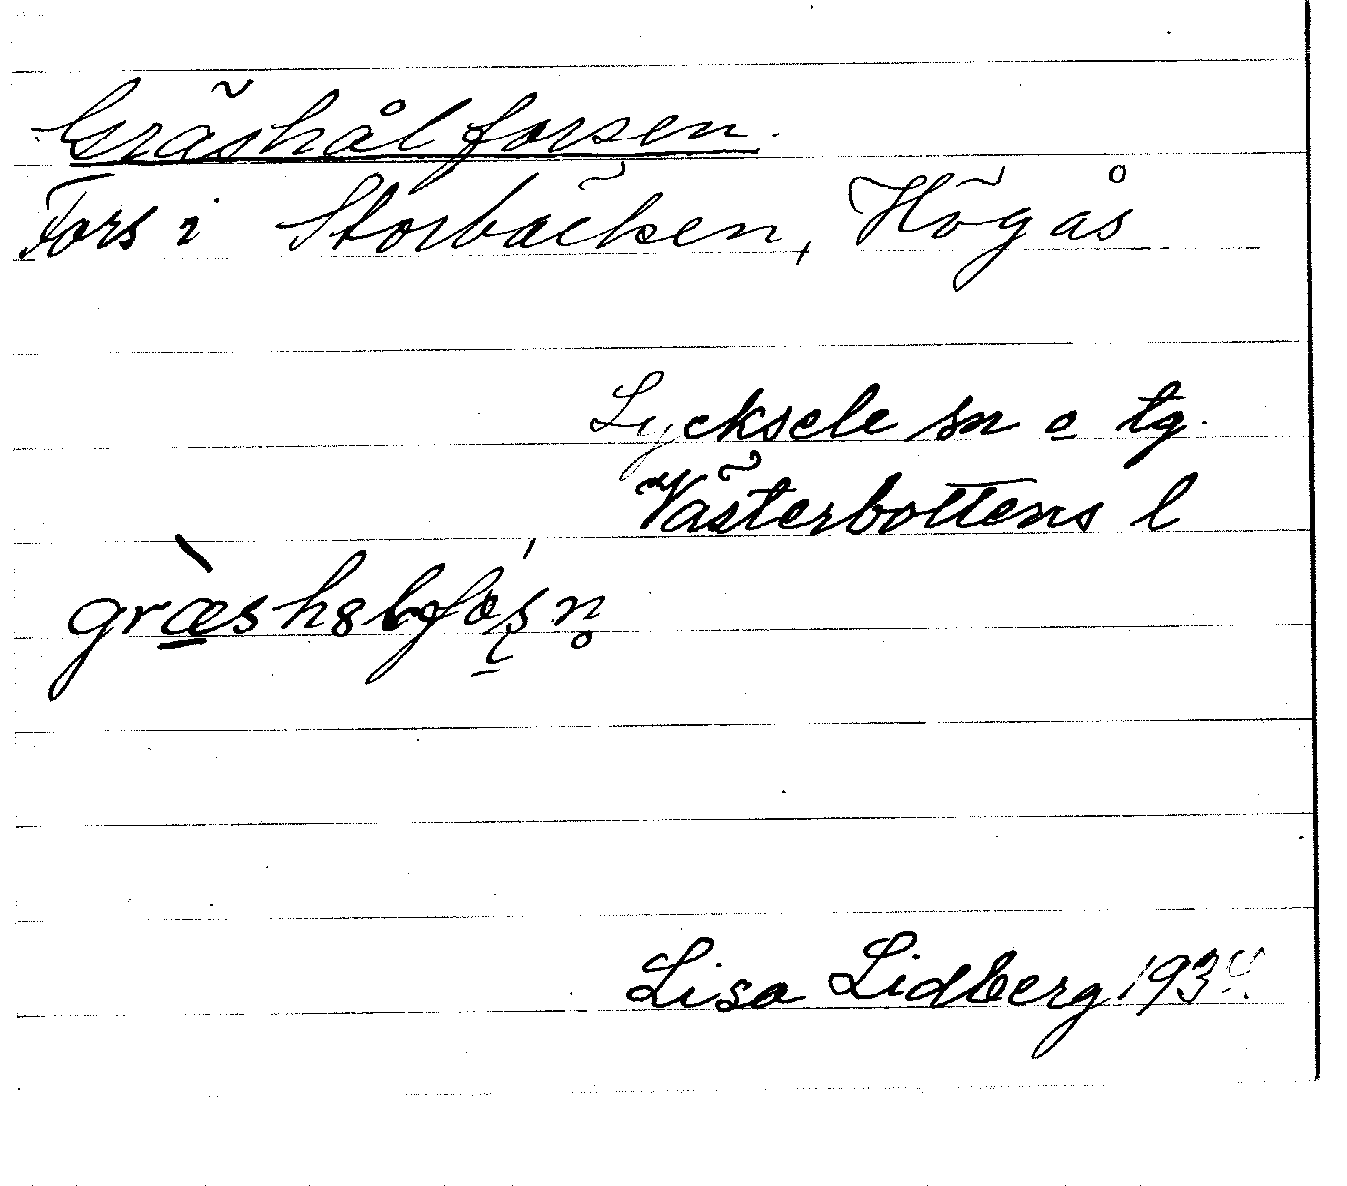 Gräshålforsen.
Fors i Storbäcken, Högås
Lycksele sn o tg.
Västerbottens l
Lisa Lidberg 1934.